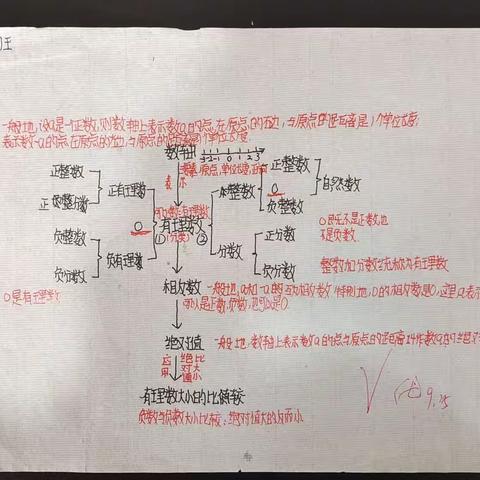 一般地,设a是一个正数,则数轴上表示数a的点在原点的右边,与原点的距离是a个单位长度;
表示数-a的点在原点的左边,与原点的距离是a个单位长度.
数轴 -3 -2 -1 0 1 2 3
原点,单位长度,正方向
表示
正整数
正有理数
正分数
0
负整数
负有理数
负分数
有理数
①(分类)②
整数
正整数
0
自然数
负整数
分数
正分数
负分数
0既不是正数也
不是负数
整数和分数统称为有理数
0是有理数
相反数 一般地,a和-a互为相反数 特别地,0的相反数是0,这里a表示
可以是正数,负数,也可以是0
绝对值 一般地,数轴上表示数a的点与原点的距离叫作数a的绝对
应用
绝对值
比大小
有理数大小的比较
负数与负数大小比较:绝对值大的反而小
9.25